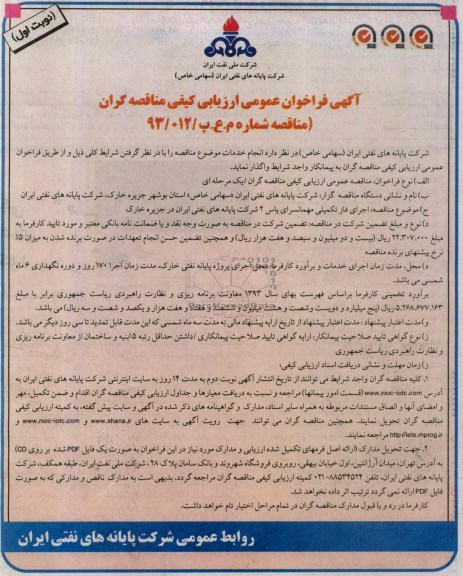 (نوبت اول)
شرکت ملی نفت ایران
شرکت پایانه های نفتی ایران (سهامی خاص)
آگهی فراخوان عمومی ارزیابی کیفی مناقصه گران
(مناقصه شماره م.ع.پ/۹۳/۰۱۲
شرکت پایانه های نفتی ایران (سهامی خاص) در نظر دارد انجام خدمات موضوع مناقصه را با در نظر گرفتن شرایط کلی ذیل و از طریق فراخوان
عمومی ارزیابی کیفی مناقصه گران به پیمانکار واجد شرایط واگذار نماید.
الف) نوع فراخوان، مناقصه عمومی ارزیابی کیفی مناقصه گران /یک مرحله ای
ب) نام و نشانی دستگاه مناقصه گزار: شرکت پایانه های نفتی ایران «سهامی خاص» استان بوشهر جزیره خارک، شرکت پایانه های نفتی ایران
ج) موضوع مناقصه: اجرای فاز تکمیلی مهمانسرای یاس ۲ شرکت پایانه های نفتی ایران در جزیره خارک
د) نوع و مبلغ تضمین شرکت در مناقصه: تضمین شرکت در مناقصه به صورت وجه نقد و یا ضمانت نامه بانکی معتبر و مورد تایید کارفرما به
مبلغ ۲۲.۳۰۷.۰۰۰ ریال (بیست و دو میلیون و سیصد و هفت هزار ریال) و همچنین تضمین حسن انجام تعهدات در صورت برنده شدن به میزان ۵٪
نرخ پیشنهای برنده مناقصه
د) محل، مدت زمان اجرای خدمات و برآورد کارفرما: محل اجرای پروژه پایانه نفتی خارک، مدت زمان اجرا ۱۷۰ روز و دوره نگهداری ۶ ماه
شمسی می باشد.
برآورد تخمینی کارفرما براساس فهرست بهای سال ۱۳۹۳ معاونت برنامه ریزی و نظارت راهبردی ریاست جمهوری برابر با مبلغ
۵.۲۶۸.۶۷۷.۱۶۳ ریال (پنج میلیارد و دویست و شصت و هشت میلیون و ششصد و هفتاد و هفت هزار و یکصد و شصت و سه ریال) می باشد.
و) مدت اعتبار پیشنهاد: مدت اعتبار پیشنهاد از تاریخ ارایه پیشنهاد مالی به مدت سه ماه شمسی که این مدت قابل تمدید تا سی روز دیگر می باشد.
ز) نوع گواهی تایید صلاحیت پیمانکار: ارایه گواهی تایید صلاحیت پیمانکاری /داشتن حداقل رتبه ۵ ابنیه و ساختمان از معاونت برنامه ریزی
و نظارت راهبردی ریاست جمهوری
ز) زمان مهلت و نشانی دریافت اسناد ارزیابی کیفی:
۱. کلیه مناقصه گران واجد شرایط می توانند از تاریخ انتشار آگهی نوبت دوم به مدت ۱۴ روز به سایت اینترنتی شرکت پایانه های نفتی ایران به
آدرس www.nioc-iotc.com (قسمت امور پیمانها) مراجعه و نسبت به دریافت معیارها و جداول ارزیابی کیفی مناقصه گران اقدام و ضمن تکمیل، مهر
و امضای آنها و الصاق مستندات مربوطه به همراه سایر اسناد، مدارک و گواهینامه های ذکر شده در آگهی و سایت پیش گفته، به کمیته ارزیابی کیفی
مناقصه گران تحویل نمایند. همچنین مناقصه گران می توانند جهت رویت آگهی به سایت های www.shana.ir و www.nioc-iotc.com و
http://iets.mporg.ir مراجعه نمایند.
۲. جهت تحویل مدارک (ارائه اصل فرمهای تکمیل شده ارزیابی و مدارک مورد نیاز در این فراخوان به صورت یک فایل PDF شده بر روی CD)
به آدرس تهران، میدان آرژانتین، اول خیابان بیهقی، روبروی فروشگاه شهروند و بانک سامان پلاک ۲۸، شرکت ملی نفت ایران، طبقه همکف، شرکت
پایانه های نفتی ایران، تلفن ۸۸۵۳۴۵۲۴-۰۲۱ کمیته ارزیابی کیفی مناقصه گران مراجعه گردد. بدیهی است به مدارک ناقص و مدارکی که به صورت
فایل PDF ارائه نمی گردد ترتیب اثر داده نخواهد شد.
کارفرما در رد و یا قبول مدارک مناقصه گران در تمام مراحل اختیار تام خواهد داشت.
روابط عمومی شرکت پایانه های نفتی ایران